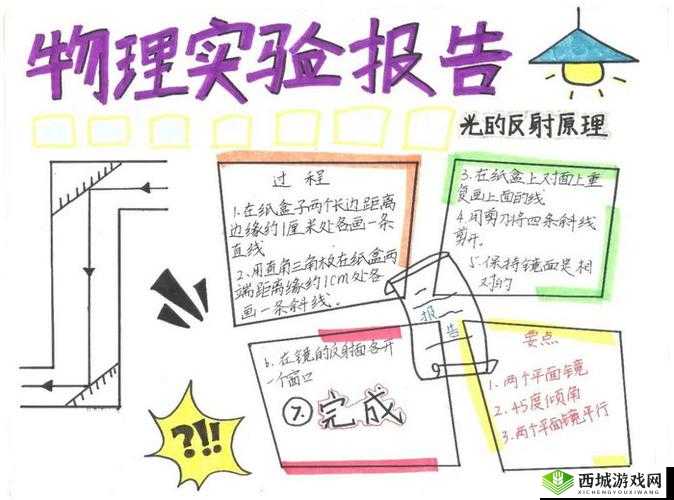 物理实验报告
光的反射原理
过程
1.在纸盒子两个长边距离
边缘约1厘米处各画一条
直线
2.用直角三角板在纸盒两
端距离缘约1cm处各
画一条斜线。
3.在纸盒上对面上重
复画上面的线
4.用剪刀将四条斜线
剪开。
5.保持镜面是相
对的
报告
6.在镜的反射面各开
一个窗口
7.完成
要点
1.两个平面镜
2.45度倾角
3.两个平面镜平行
?!!
西城游戏网
XICHENGYOUXIWANG